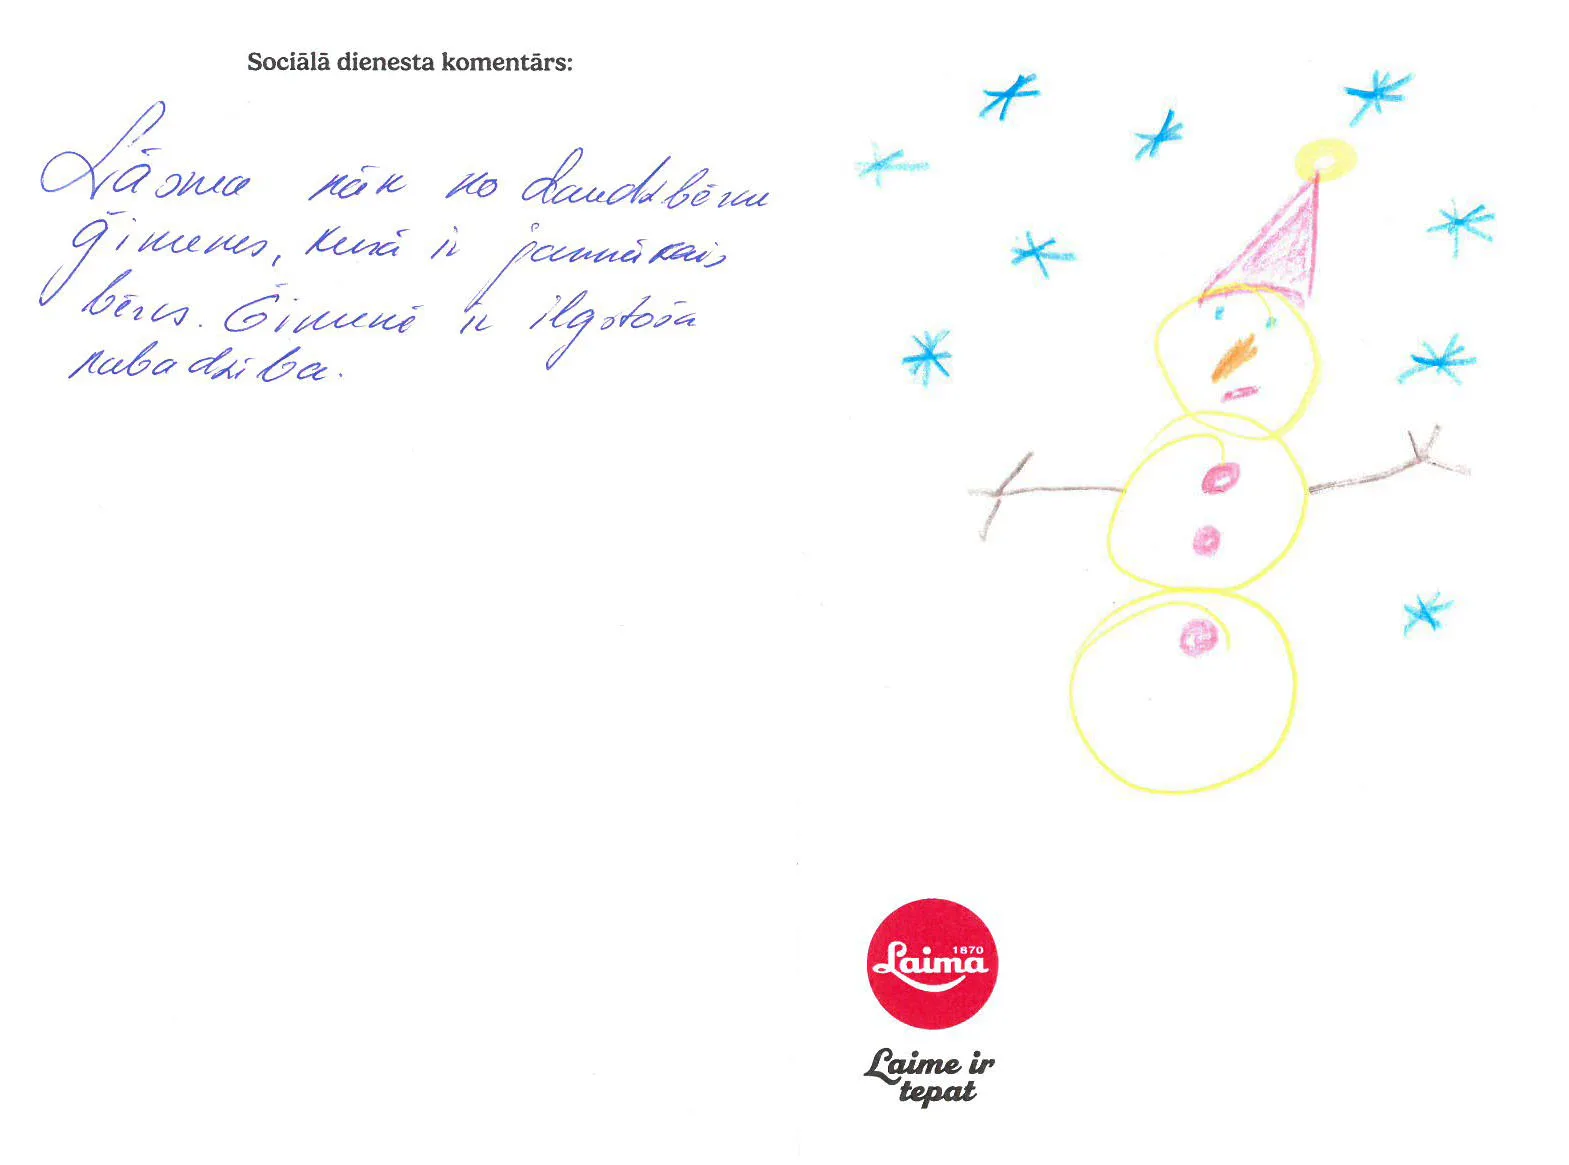 Sociālā dienesta komentārs:
Lāsma nāk no daudzbērnu
ģimenes, kurā ir jaunākais
bērns. Ģimenē ir ilgstoša
nabadzība.
Laima 1870
Laime ir
tepat